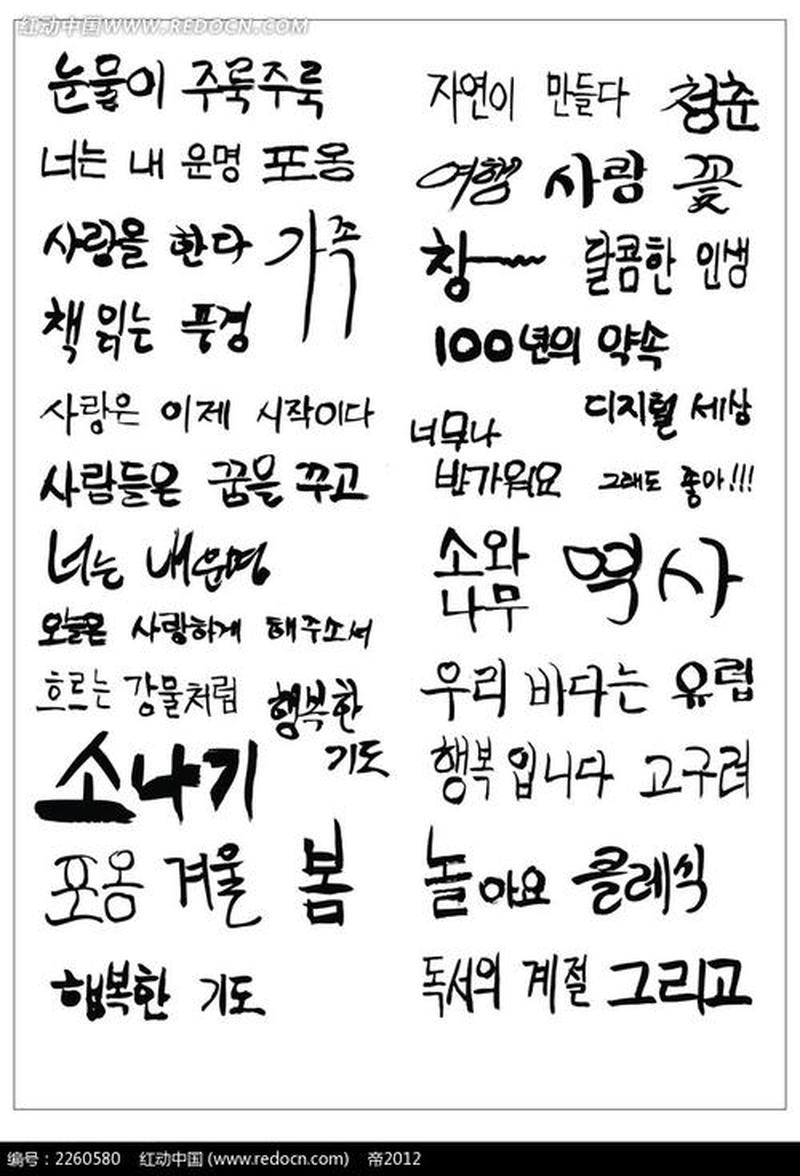 红动中国 WWW.REDOCN.COM
눈물이 주룩주룩
너는 내 운명 포옹
사랑을 한다 가족
책 읽는 풍경
사랑은 이제 시작이다
사람들은 꿈을 꾸고
너는 내 운명
오늘은 사랑하게 해주소서
흐르는 강물처럼 행복한
기도
소나기
포옹 겨울 봄
행복한 기도
자연이 만들다 청춘
여행 사랑 꽃
창 달콤한 인생
100년의 약속
디지털 세상
너무나
반가워요 그래도 좋아!!!
소와
나무
역사
우리 바다는 유럽
행복입니다 고구려
놀아요 클레식
독서의 계절 그리고
编号：2260580 红动中国 (www.redocn.com) 帝2012